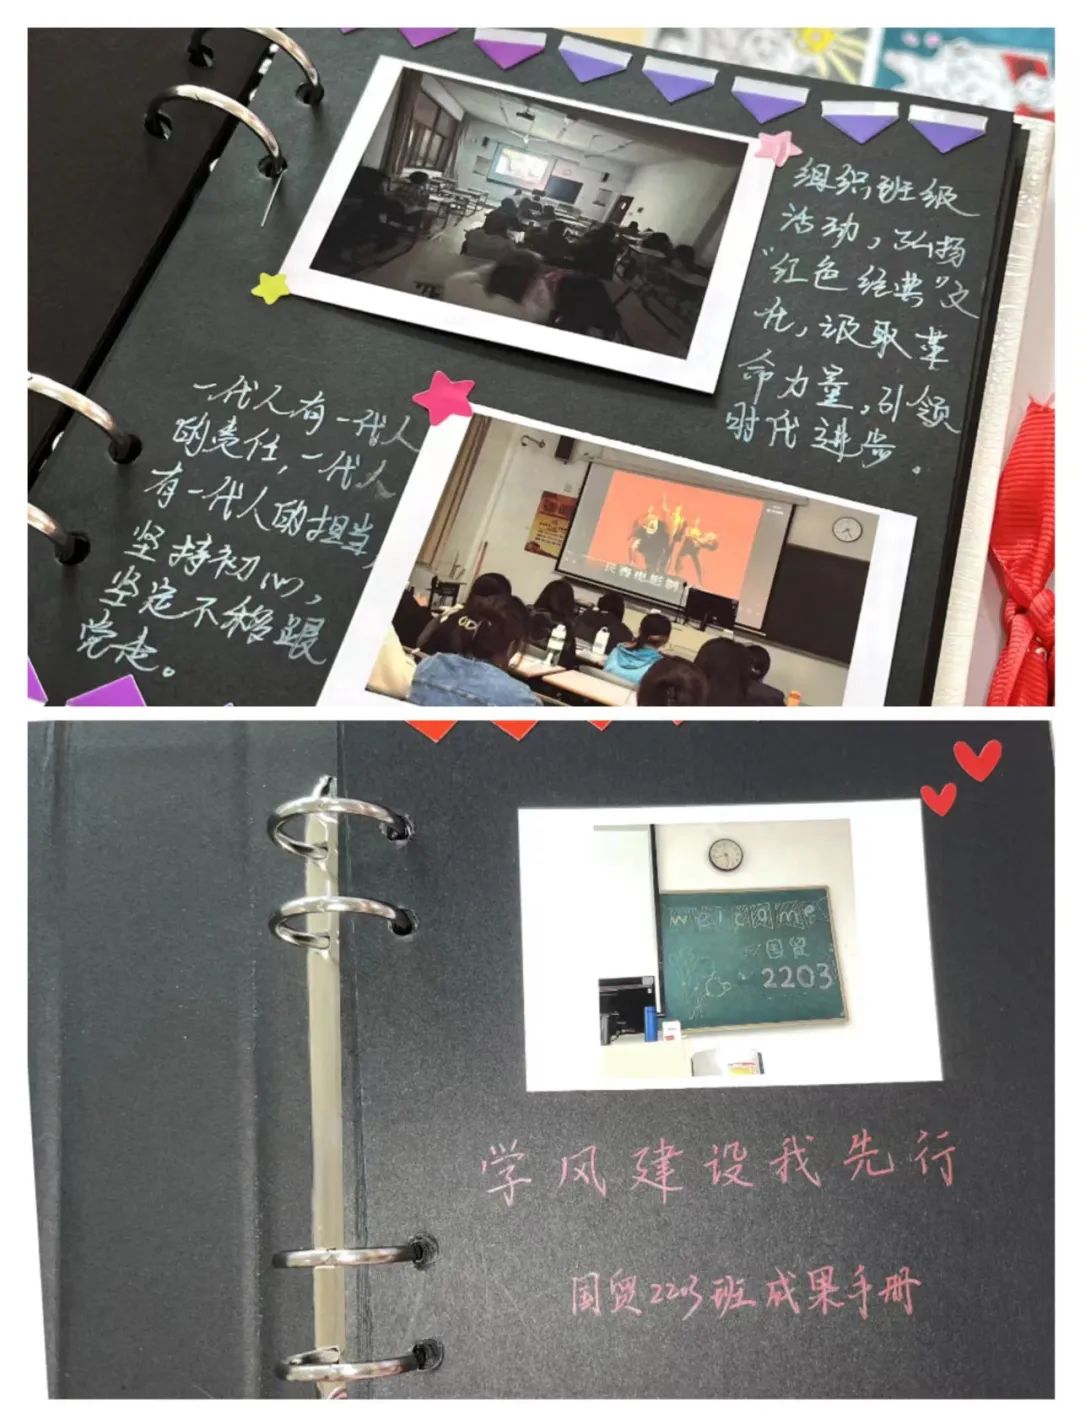 组织班级
活动，弘扬
“红色经典”文
化，汲取革
命力量，引领
时代进步。
一代人有一代人
的责任，一代人
有一代人的担当，
坚持初心，
坚定不移跟
党走。
长春电影制
welcome
国贸
2203
学风建设我先行
国贸2203班成果手册